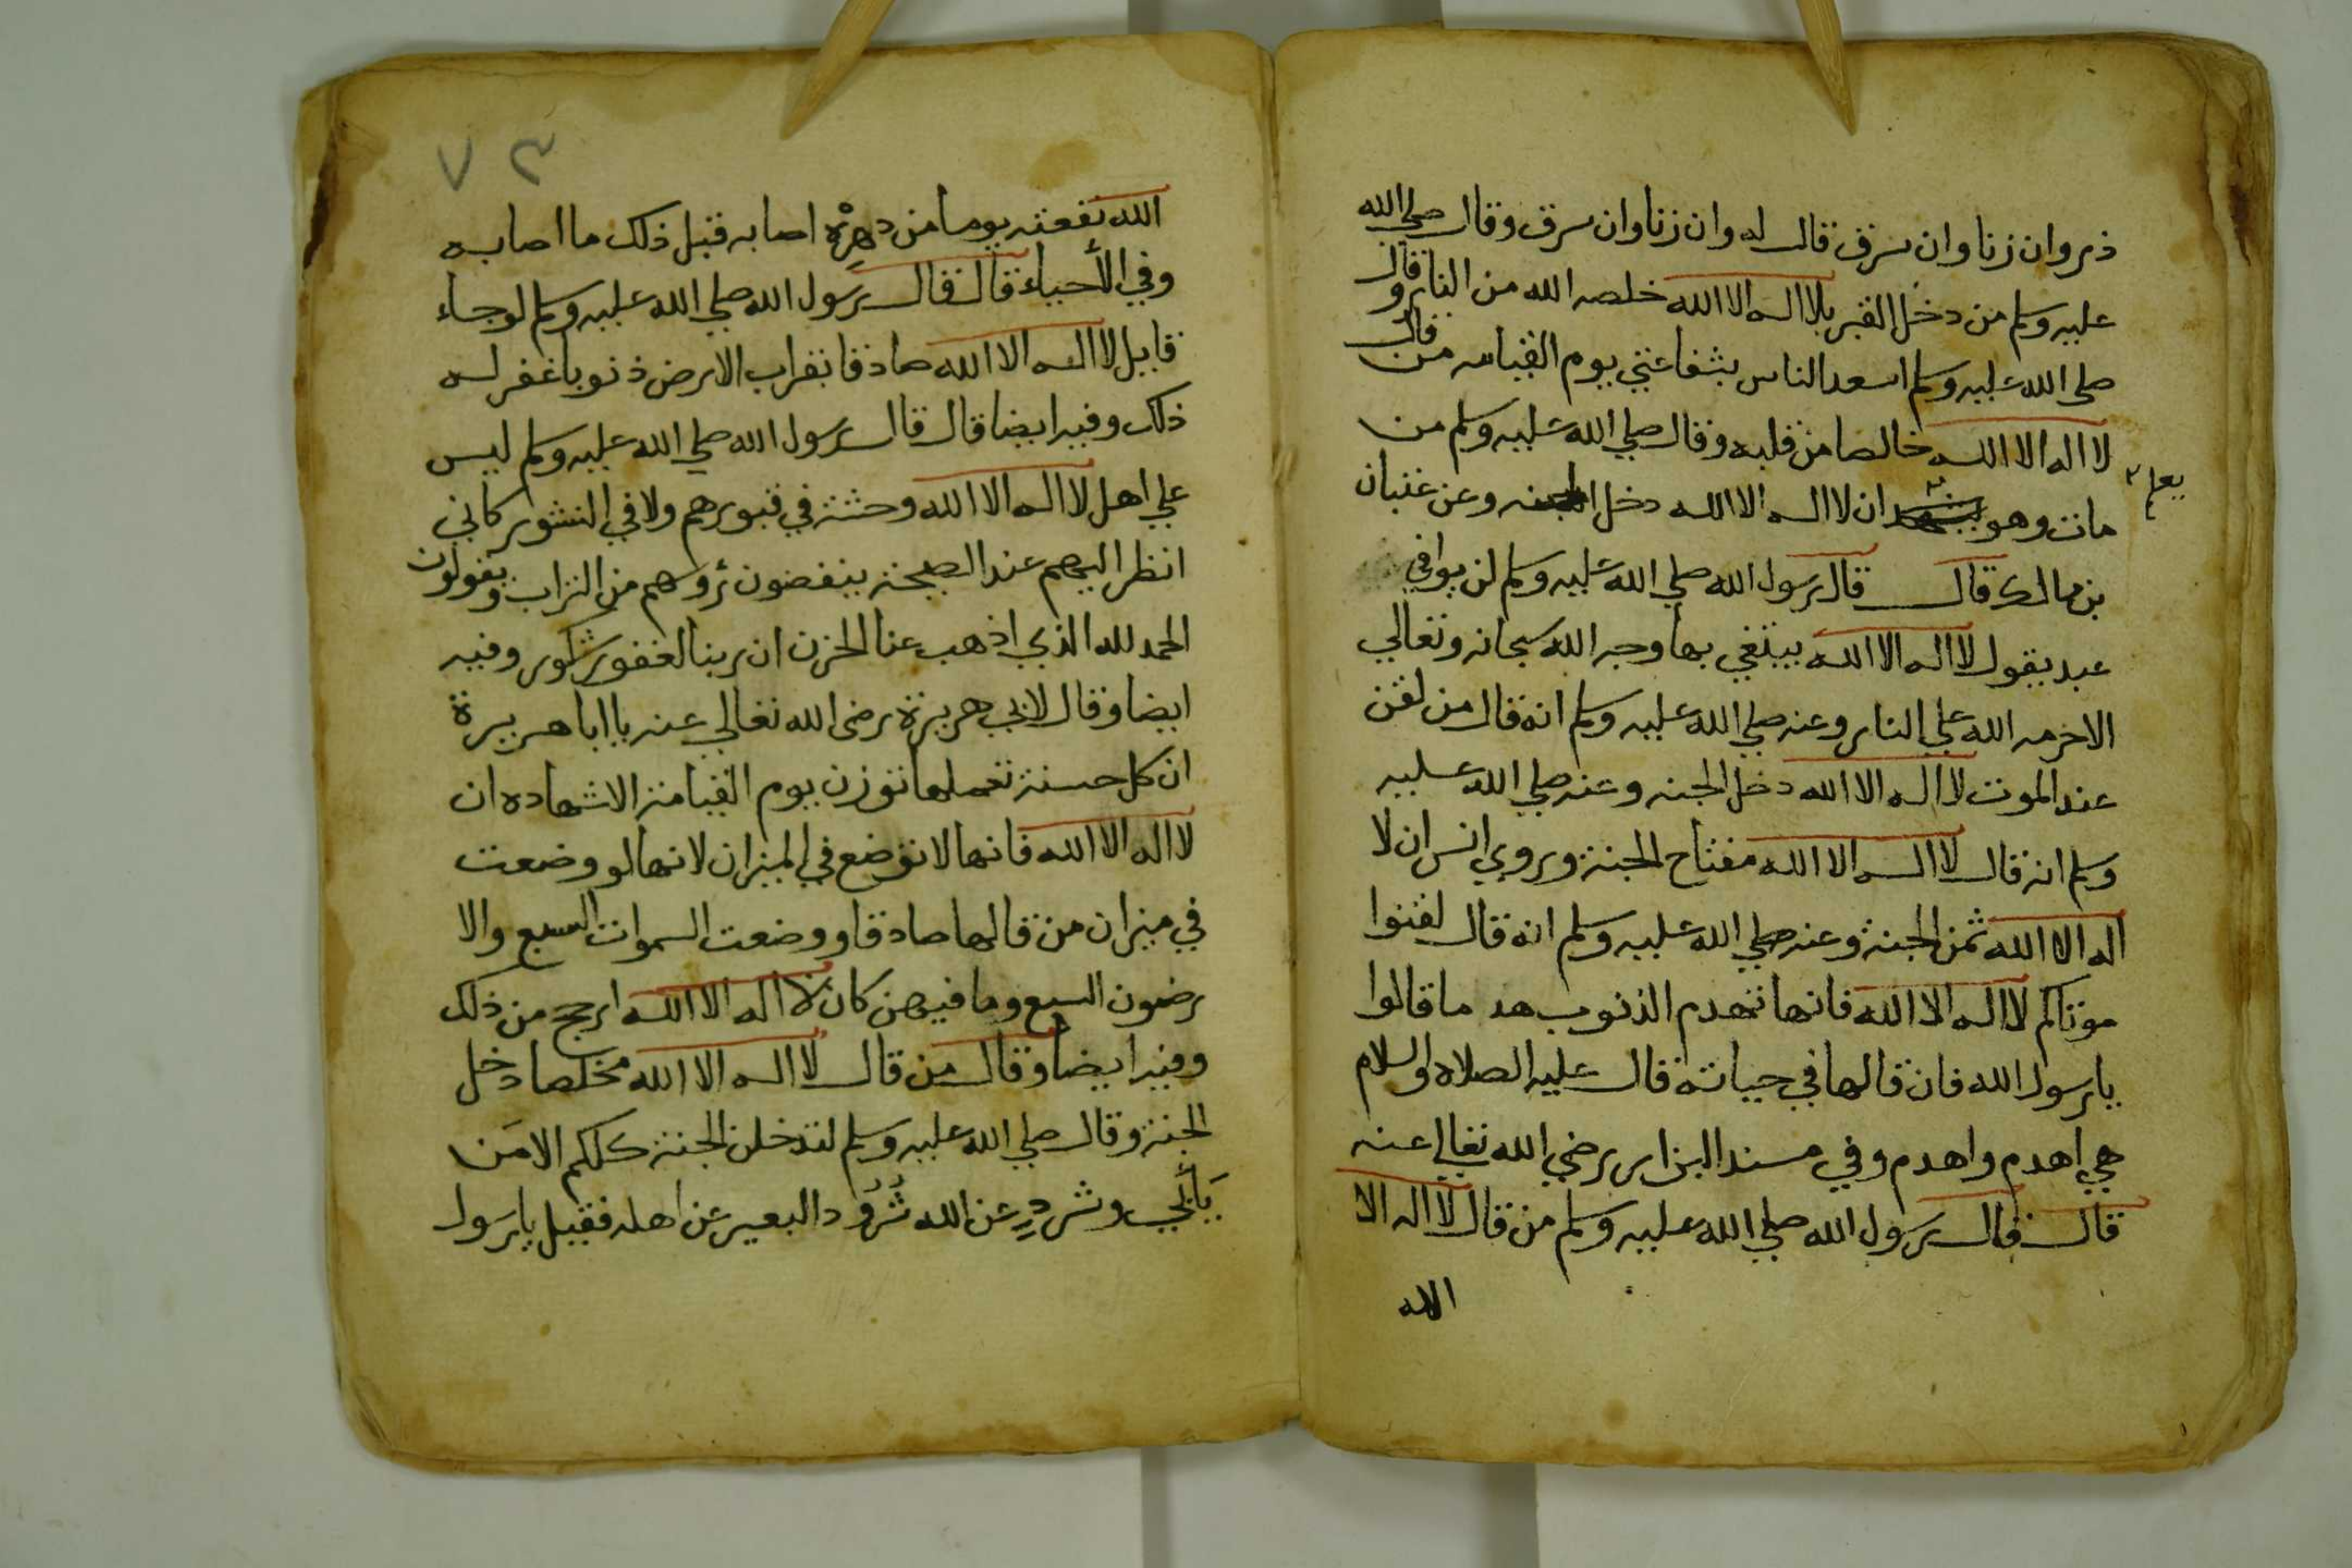 ذر وان زنا وان سرق قال له وان زنا وان سرق وقال صلي الله
عليه وسلم من دخل القبر بلا اله الا الله خلصه الله من النار وقال
صلى الله عليه وسلم اسعد الناس بشفاعتي يوم القيامه من قال
لا اله الا الله خالصا من قلبه وقال صلي الله عليه وسلم من
مات وهو يشهد ان لا اله الا الله دخل الجنه وعن عتبان
يعلم
بن مالك قال قال رسول الله صلي الله عليه وسلم لن يوافي
عبد يقول لا اله الا الله يبتغي بها وجه الله سبحانه وتعالي
الا حرمه الله علي النار وعنه صلي الله عليه وسلم انه قال من لقن
عند الموت لا اله الا الله دخل الجنه وعنه صلي الله عليه
وسلم انه قال لا اله الا الله مفتاح الجنة وروي انس ان لا
اله الا الله ثمن الجنة وعنه صلي الله عليه وسلم انه قال لقنوا
موتاكم لا اله الا الله فانها تهدم الذنوب هدما قالوا
يا رسول الله فان قالها في حياته قال عليه الصلاه والسلام
هي اهدم واهدم وفي مسند البزار رضي الله تعالي عنه
قال قال رسول الله صلي الله عليه وسلم من قال لا اله الا
الله
٧٣
الله نفعته يوما من دهره اصابه قبل ذلك ما اصابه
وفي الأحياء قال قال رسول الله صلي الله عليه وسلم لو جاء
قايل لا اله الا الله صادقا بقراب الارض ذنوبا غفر له
ذلك وفيه ايضا قال قال رسول الله صلي الله عليه وسلم ليس
علي اهل لا اله الا الله وحشة في قبورهم ولا في النشور كاني
انظر اليهم عند الصيحة ينفضون رؤسهم من التراب ويقولون
الحمد لله الذي اذهب عنا الحزن ان ربنا لغفور شكور وفيه
ايضا وقال لابي هريرة رضى الله تعالي عنه يا ابا هريرة
ان كل حسنة تعملها توزن يوم القيامة الا شهاده ان
لا اله الا الله فانها لا توضع في الميزان لانها لو وضعت
في ميزان من قالها صادقا ووضعت السموات السبع والا
رضون السبع وما فيهن كان لا اله الا الله ارجح من ذلك
وفيه ايضا وقال من قال لا اله الا الله مخلصا دخل
الجنة وقال صلي الله عليه وسلم لتدخلن الجنة كلكم الا من
يَأبي وشرد عن الله شُرُود البعير عن اهله فقيل يا رسول